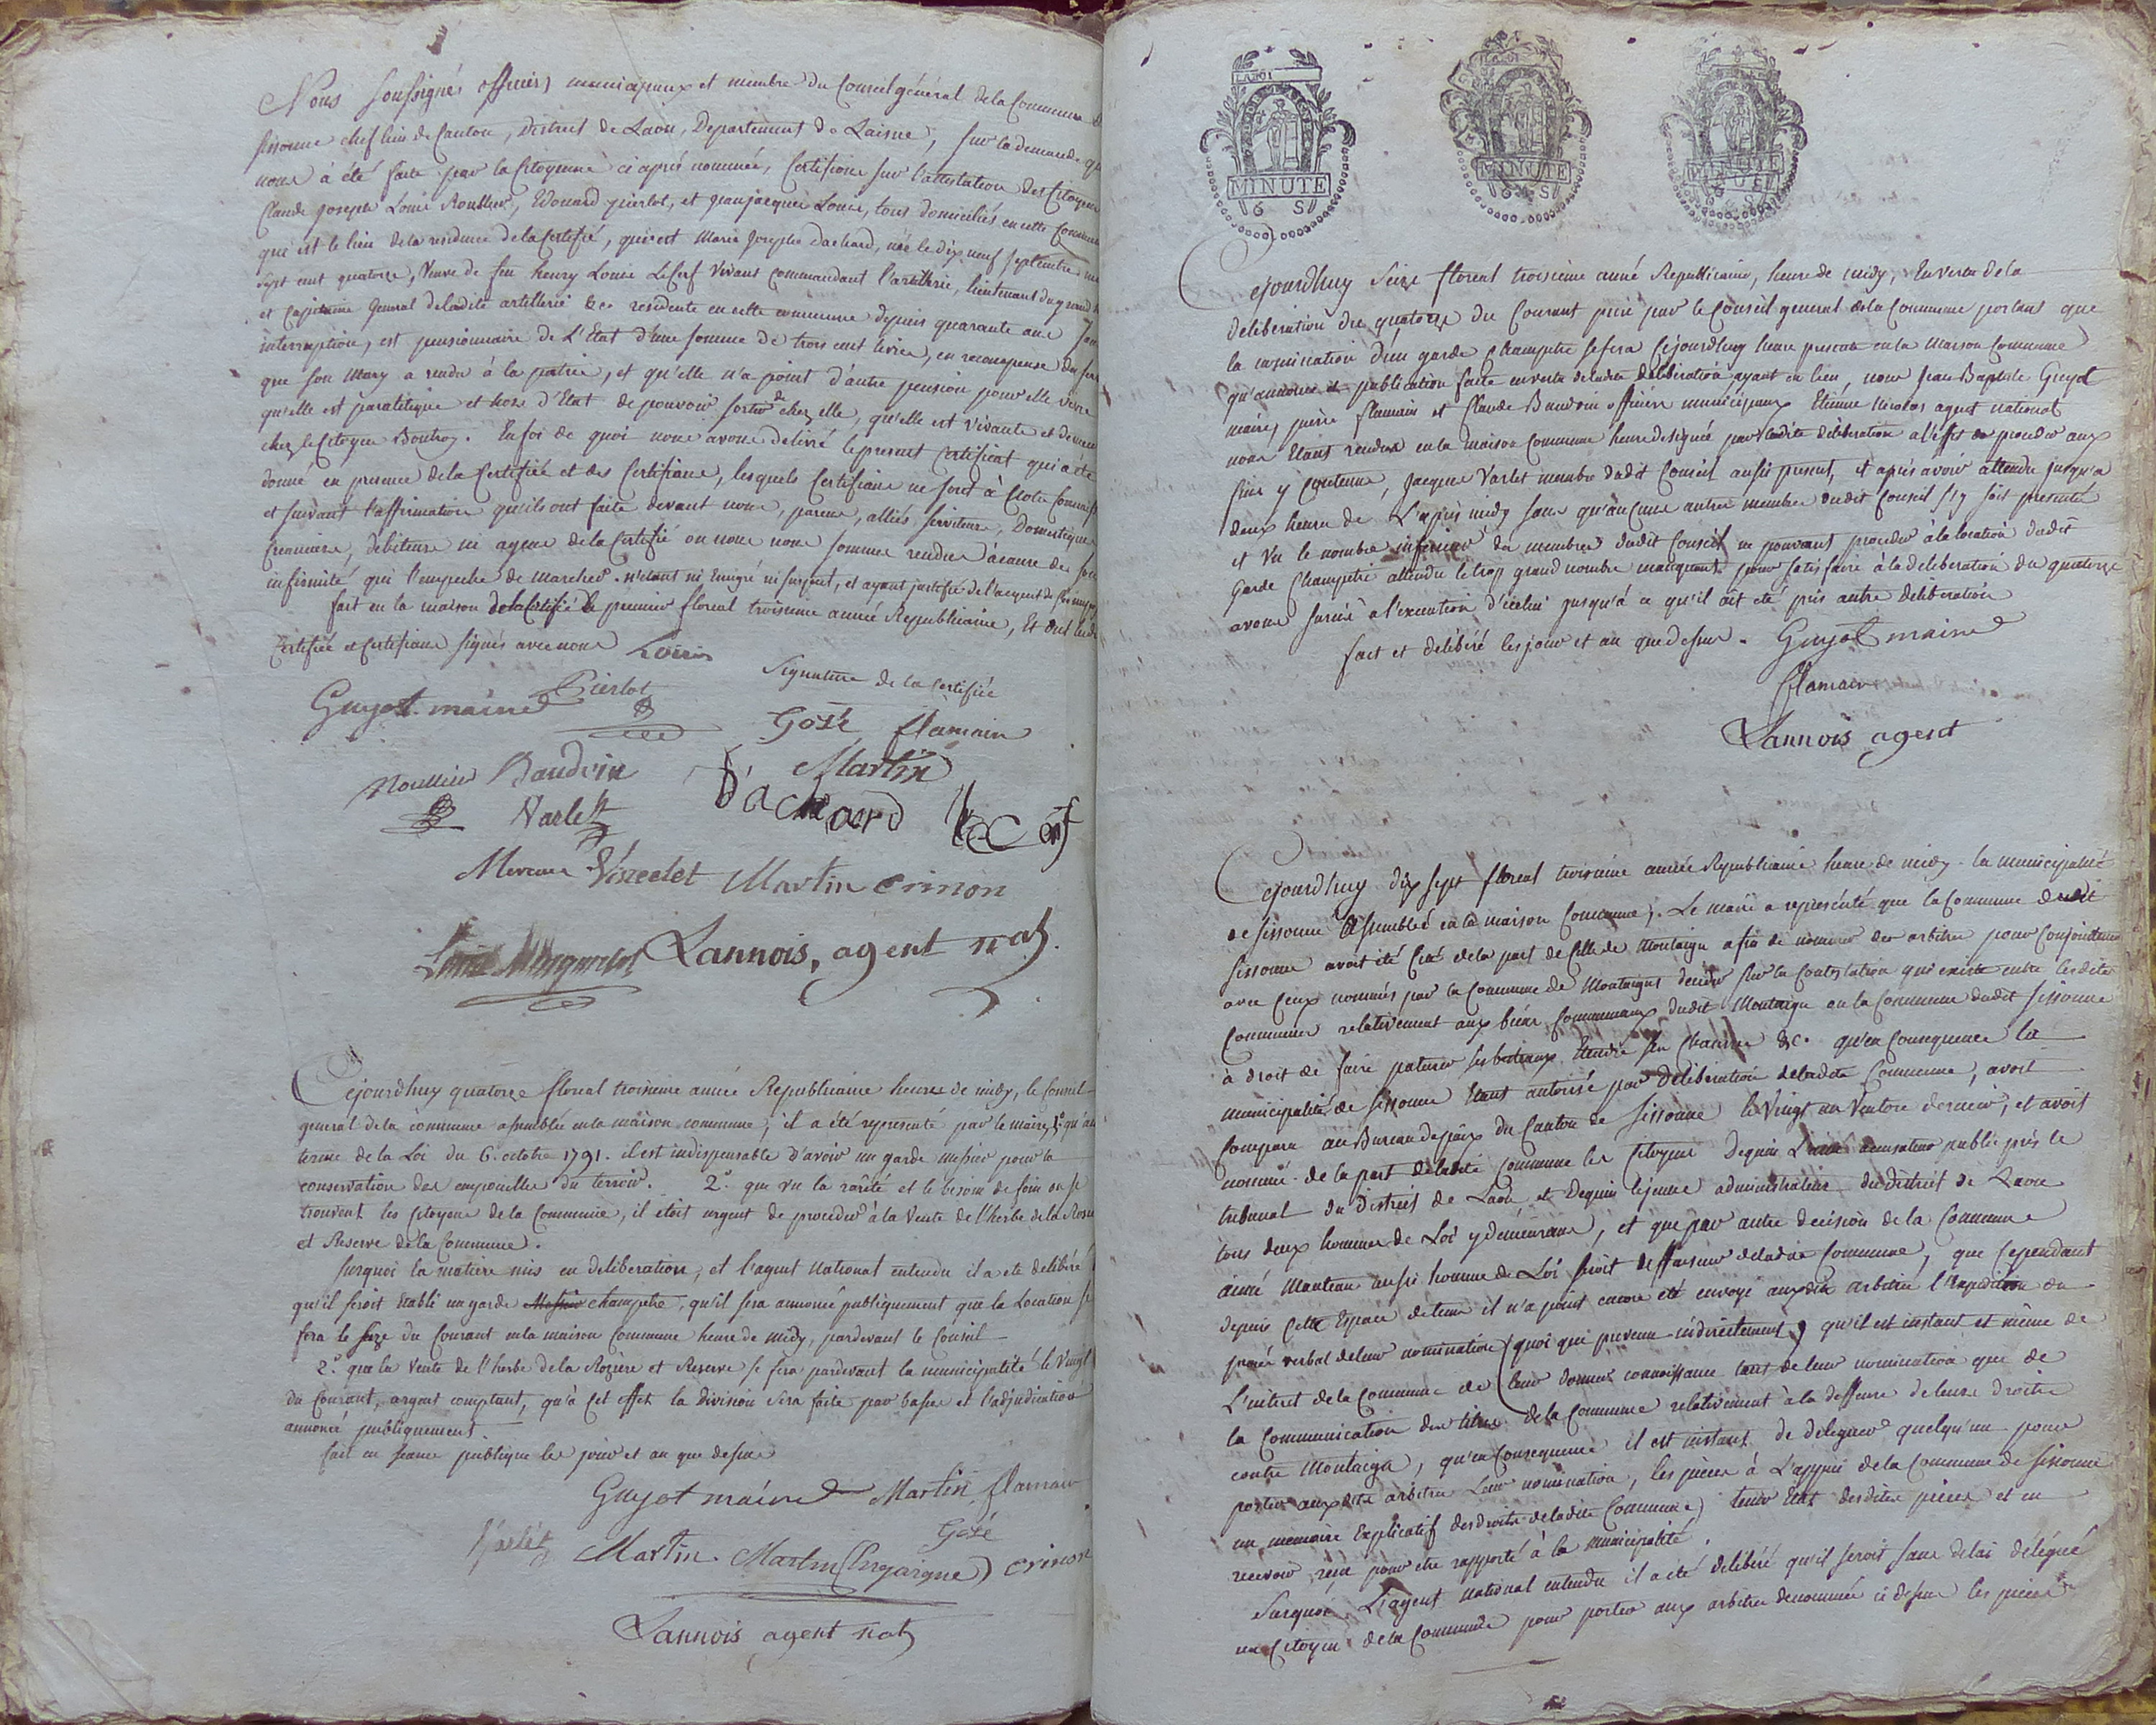 Nous soussignés officiers municipaux et membre du Conseil général de la Commune de
sissonne chef lieu de Canton, District de Laon, Departement de Laisne, sur la demande qui
nous à été faite par la Citoyenne ci après nommée, Certifions sur l'attestation des Citoyens
Claude Joseph Louis Roullier, Edouard pierlot, et jean jacques Louis, tous domiciliés en cette Commune
que est le lieu de la residence de la Certifié, qu'est Marie Josephe dachard, née le dix neuf septembre mil
sept cent quatorze, Veuve de feu henry Louis Le Cerf Vivant Commandant l'artillerie, lieutenant du grand
et Capitaine General de ladite artillerie &c. residente en cette commune depuis quarante ans
interruption, est pensionnaire de L'Etat d'une somme de trois cent livres, en recompense des
que son Mary a rendu à la patrie, et qu'elle n'a point d'autre pension pour elle vivre
qu'elle est paralitique et hors d'Etat de pouvoir sortir de chez elle, qu'elle est vivante et
chez le Citoyen Boutroy. En foi de quoi nous avons delivré le present Certificat qui a été
donné en presence de la Certifiée et des Certifians, lesquels Certifians ne sont à notre
et suivant l'affirmation qu'ils ont faite devant nous, parens, alliés, serviteurs, Domestiques
Creanciers, debiteurs ni agens de la Certifié ou nous nous sommes rendus à cause de
infirmité qui l'empeche de Marcher. n'etant ni Emigré ni suspect, et ayant justifié de l'acquit de
fait en la maison de la Certifié le premier floreal troisieme année Republicaine, Et ont
Certifiée et Certifians signés avec nous Louis
Signature de la Certifiée
Guyot maire Pierlot
Gosé flamain
Roullier Baudoin Martin
Varlet Dachard lecerf
Mercier Vizeelet Martin crinon
Lannois, agent nat.
Cejourdhuy quatorze floreal troisieme année Republicaine heure de midy, le Conseil
general de la commune assemblée en la maison commune; il a été representé par le maire, 1° qu'au
terme de la Loi du 6. octobre 1791. il est indispensable d'avoir un garde messier pour la
conservation des empouilles du terroir. 2° que vu la rarité et le besoin de foin ou se
trouvent les Citoyens de la Commune, il etoit urgent de proceder à la Vente de l'herbe de la
et Reserve de la Commune.
surquoi la matiere mis en deliberation, et l'agent National entendu il a été deliberé
qu'il seroit Etabli un garde Messier champetre, qu'il sera annoncé publiquement que la Location se
fera le seize du Courant en la maison Commune heure de midy, pardevant le Conseil
2° que la Vente de l'herbe de la Rozière et Reserve se fera pardevant la municipalité le Vingt
du Courant, argent comptant, qu'à cet effet la division sera faite par et l'adjudication
annoncé publiquement.
fait en seance publique les jour et an que dessus
Guyot maire Martin flamain
Varlet Martin. Martin Gosé crinon
Lannois agent nat
LA LOI LA LOI LA LOI
MINUTE MINUTE MINUTE
6 S 6 S 6 S
Cejourdhuy Seize floreal troisieme année Republicaine, heure de midy, En vertu de la
deliberation du quatorze du Courant prise par le Conseil general de la Commune portant que
la nomination d'un garde champetre se fera Cejourdhuy heure presente en la maison Commune
qu'annonce et publication faite en vertu de ladite deliberation ayant eu lieu, nous Jean Baptiste Guyot
maire, pierre flamain et Claude Baudoin officiers municipaux Etienne Nicolas agent national
nous Etant rendus en la maison Commune heure designée par ladite deliberation a l'effet de proceder aux
fins y contenus, Jacques Varlet membre dudit Conseil aussi present, et après avoir attendu jusqu'a
deux heures de L'après midy sans qu'aucuns autres membres dudit Conseil s'y soit presenté
et vu le nombre inferieur des membres dudit Conseil ne pouvant proceder à la location dudit
Garde Champetre attendu le trop grand nombre manquant pour satisfaire à la deliberation du quatorze
avons sursis à l'execution d'icelui jusqu'à ce qu'il ait eté pris autre deliberation
fait et delibéré les jour et an que dessus. Guyot maire
flamain
Lannois agent
Cejourdhuy dix sept floreal troisieme année Republicaine heure de midy. la municipalité
de sissonne assemblée en la maison Commune, Le maire a representé que la Commune dudit
sissonne avoit été Cité de la part de Celle de Montaigu afin de nommer des arbitres pour conjointement
avec Ceux nommés par la Commune de Montaigu decider sur la Contestation qui existe entre lesdites
Communes relativement aux biens Communaux dudit Montaigu ou la Commune dudit sissonne
à droit de faire paturer ses bestiaux Etendre sa Chanvre &c. qu'en Consequence la
municipalité de sissonne Etant autorisé par deliberation de ladite Commune, avoit
Comparu au Bureau de paix du Canton de sissonne le Vingt un Ventose dernier, et avoit
nommé de la part de ladite commune les Citoyens Dequin L'ainé accusateur public près le
tribunal du District de Laon et Dequin lejeune administrateur du District de Laon
tous deux hommes de Loi y demeurans, et que par autre decision de la Commune
ainé Manteau aussi homme de Loi seroit deffenseur de ladite Commune, que Cependant
depuis Cette Espace de tems il n'a point encore été envoyé auxdits arbitres l'Expedition du
procès verbal de leur nomination (quoi que prevenu indirectement) qu'il est instant et même de
L'interet de la Commune de leur donner connoissance tant de leur nomination que de
la Communication des titres de la Commune relativement à la deffense de leurs droits
contre Montaigu, qu'en Consequence il est instant de deleguer quelqu'un pour
porter auxdits arbitres Leur nomination, les pieces à L'appui de la Commune de sissonne
un memoire Explicatif des droits de ladite Commune, tenir Etat desdites pieces et en
recevoir reçu pour etre rapporté à la municipalité.
Surquoi L'agent national entendu il a été delibéré qu'il seroit sans delai délégué
un Citoyen de la Commune pour porter aux arbitres denommés ci dessus les pieces